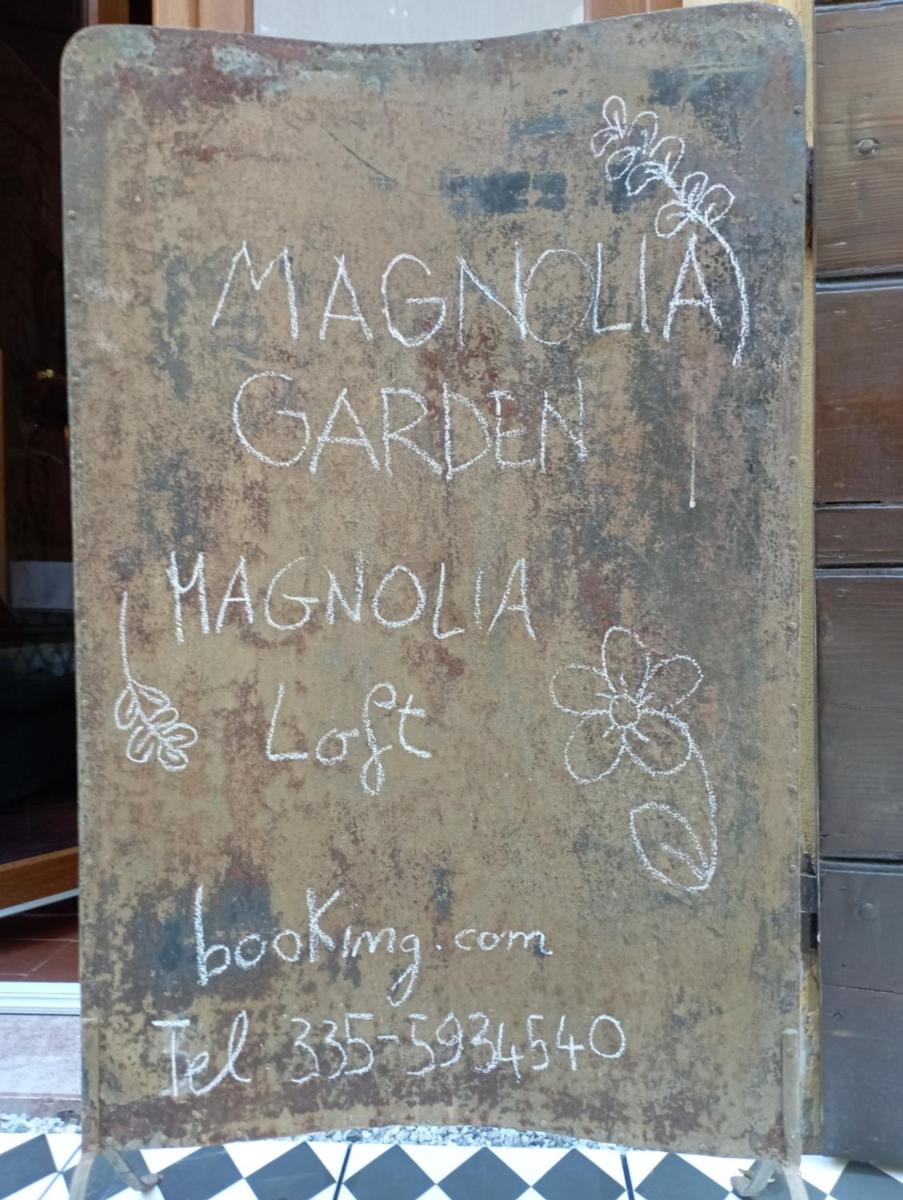 MAGNOLIA
GARDEN
MAGNOLIA
Loft
booKing.com
Tel 335-5934540